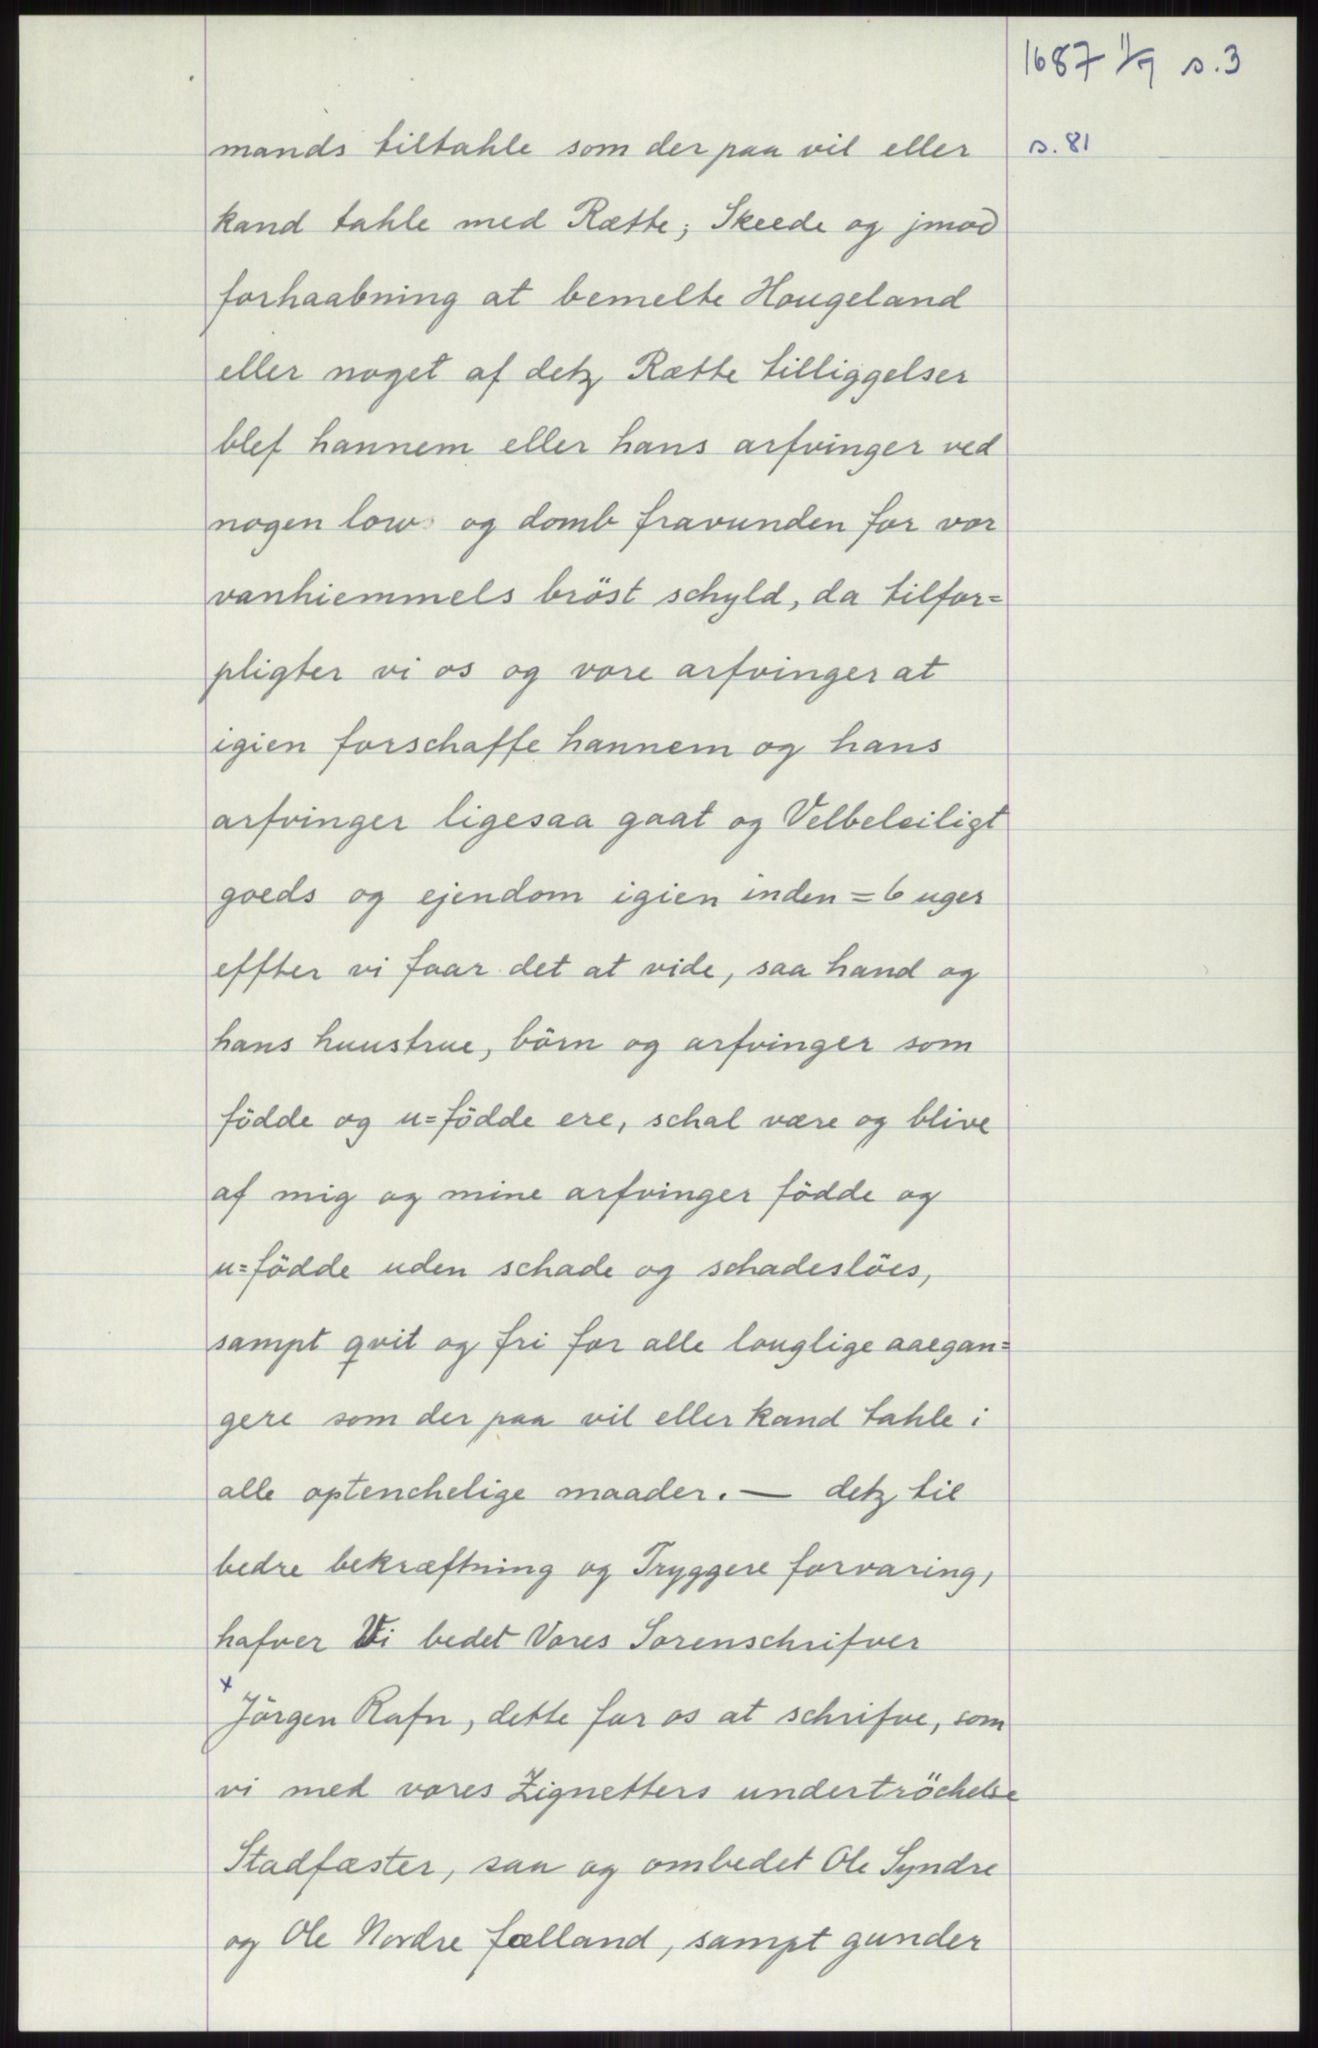 1687 11/9 s.3
mands tiltahle som der paa vil eller
s. 81
kand tahle med Rætte; Skeede og jmod
forhaabning at bemelte Hougeland
eller noget af detz Rætte tilliggelser
blef hannem eller hans arfvinger ved
nogen low og domb fravunden for vor
vanhiemmels bröst schyld, da tilfor=
pligter vi os og vore arfvinger at
igien forschaffe hannem og hans
arfvinger ligesaa gaat og Velbeleiligt
goeds og ejendom igien inden = 6 uger
effter vi faar det at vide, saa hand og
hans huustrue, börn og arfvinger som
födde og u=födde ere, schal være og blive
af mig og mine arfvinger födde og
u=födde uden schade og schadeslöes,
sampt qvit og fri for alle louglige aaegan=
gere som der paa vil eller kand tahle i
alle optenchelige maader. — detz til
bedre bekræftning og Tryggere forvaring,
hafver Vi bedet Vores Sorenschrifver
x Jörgen Rafn, dette for os at schrifve, som
vi med vores Zignetters undertröchelse
Stadfæster, saa og ombedet Ole Syndre
og Ole Nordre fælland, sampt gunder